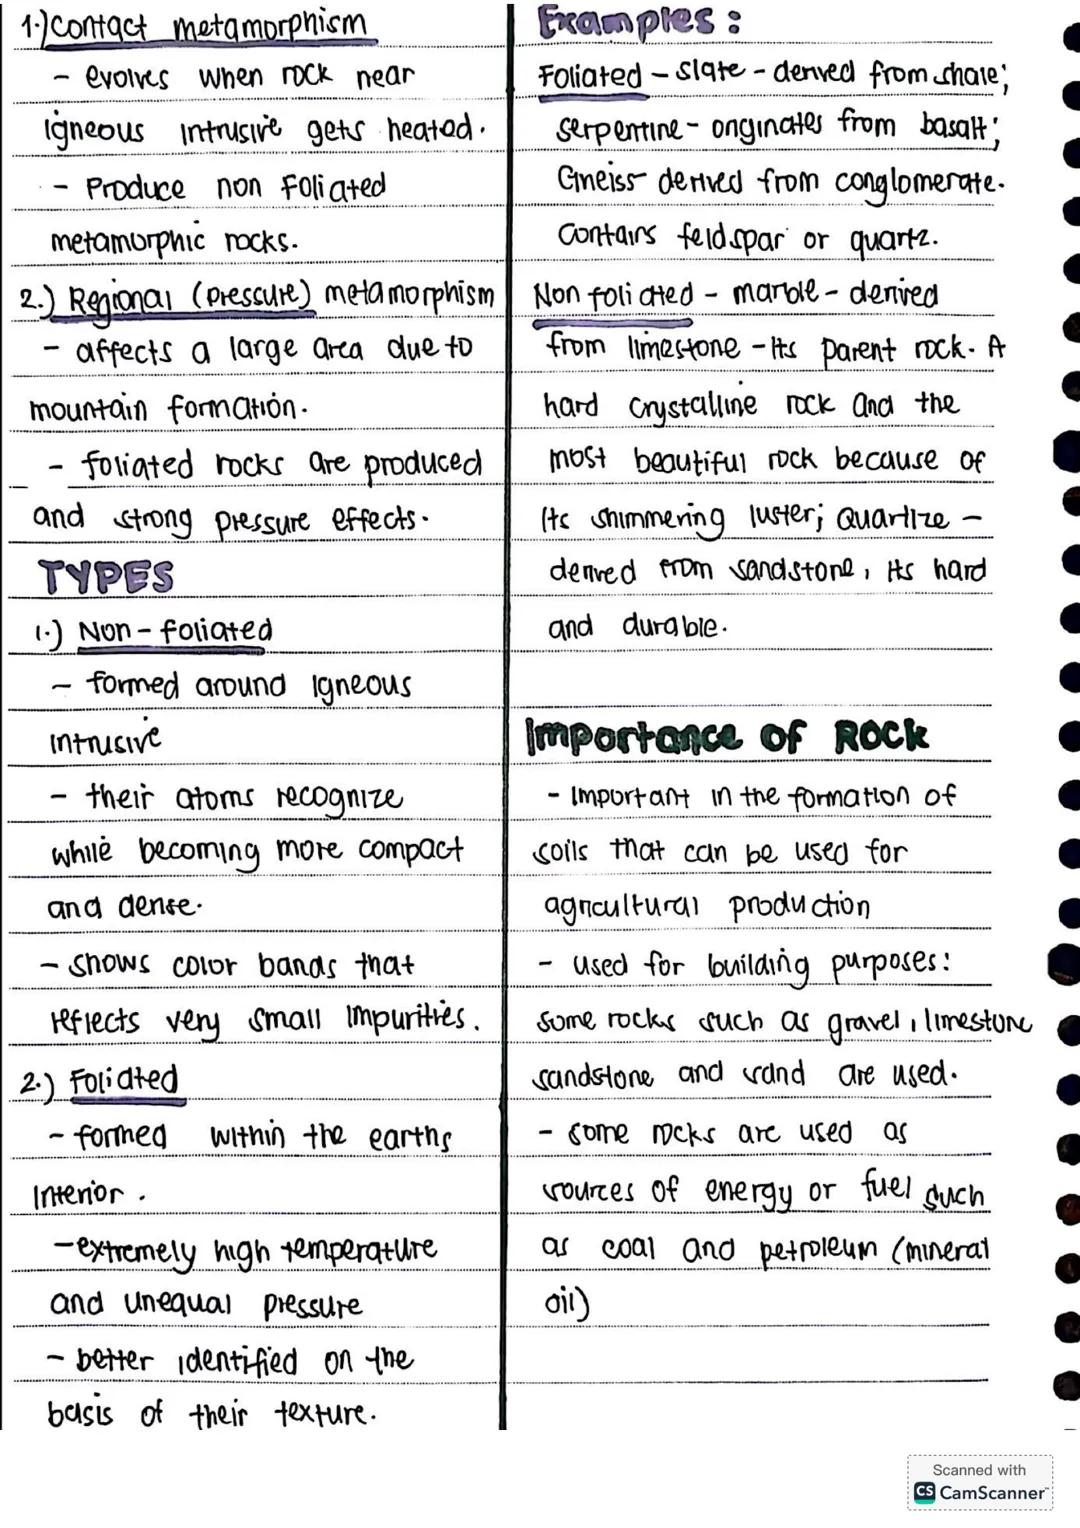 1.) Contact metamorphism
- evolves when rock near
igneous intrusive gets heated.
- Produce non foliated
metamorphic rocks.
2.) Regional (pressure) metamorphism
- affects a large area due to
mountain formation.
- foliated rocks are produced
and strong pressure effects.
TYPES
1.) Non-foliated
- formed around igneous
intrusive
- their atoms recognize
while becoming more compact
and dense.
- shows color bands that
reflects very small impurities.
2.) Foliated
- formed within the earths
interior.
- extremely high temperature
and unequal pressure
- better identified on the
basis of their texture.
Examples:
Foliated - slate - derived from shale;
serpentine - originates from basalt;
Gneiss derived from conglomerate.
contains feldspar or quartz.
Non foliated - marble - derived
from limestone - its parent rock. A
hard crystalline rock and the
most beautiful rock because of
its shimmering luster; Quartize -
derived from sandstone, its hard
and durable.
Importance of Rock
- Important in the formation of
soils that can be used for
agricultural production
- used for building purposes:
some rocks such as gravel, limestone
sandstone and sand are used.
- some rocks are used as
sources of energy or fuel such
as coal and petroleum (mineral
oil)
Scanned with
CS CamScanner